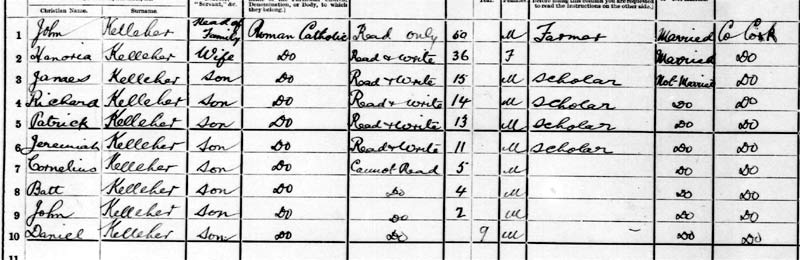 "Servant," &c.
Denomination, or Body, to which they belong.]
to read the instructions on the other side.]
Christian Name. Surname.
1 John Kelleher Head of Family Roman Catholic Read only 60 M Farmer Married Co Cork
2 Hanoria Kelleher Wife Do Read & Write 36 F Married Do
3 James Kelleher Son Do Read & Write 15 M Scholar Not Married Do
4 Richard Kelleher Son Do Read & write 14 M Scholar Do Do
5 Patrick Kelleher Son Do Read & Write 13 M Scholar Do Do
6 Jeremiah Kelleher Son Do Read & Write 11 M Scholar Do Do
7 Cornelius Kelleher Son Do Cannot Read 5 M Do Do
8 Batt Kelleher Son Do Do 4 M Do Do
9 John Kelleher Son Do Do 2 M Do Do
10 Daniel Kelleher Son Do Do 9 M - Do Do
11